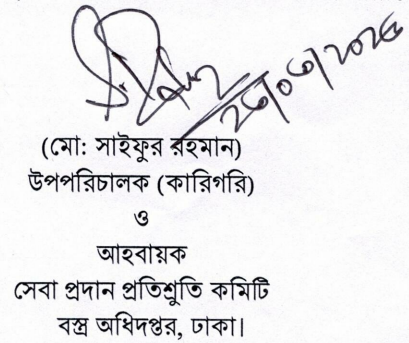 (মো: সাইফুর রহমান)
উপপরিচালক (কারিগরি)
ও
আহবায়ক
সেবা প্রদান প্রতিশ্রুতি কমিটি
বস্ত্র অধিদপ্তর, ঢাকা।